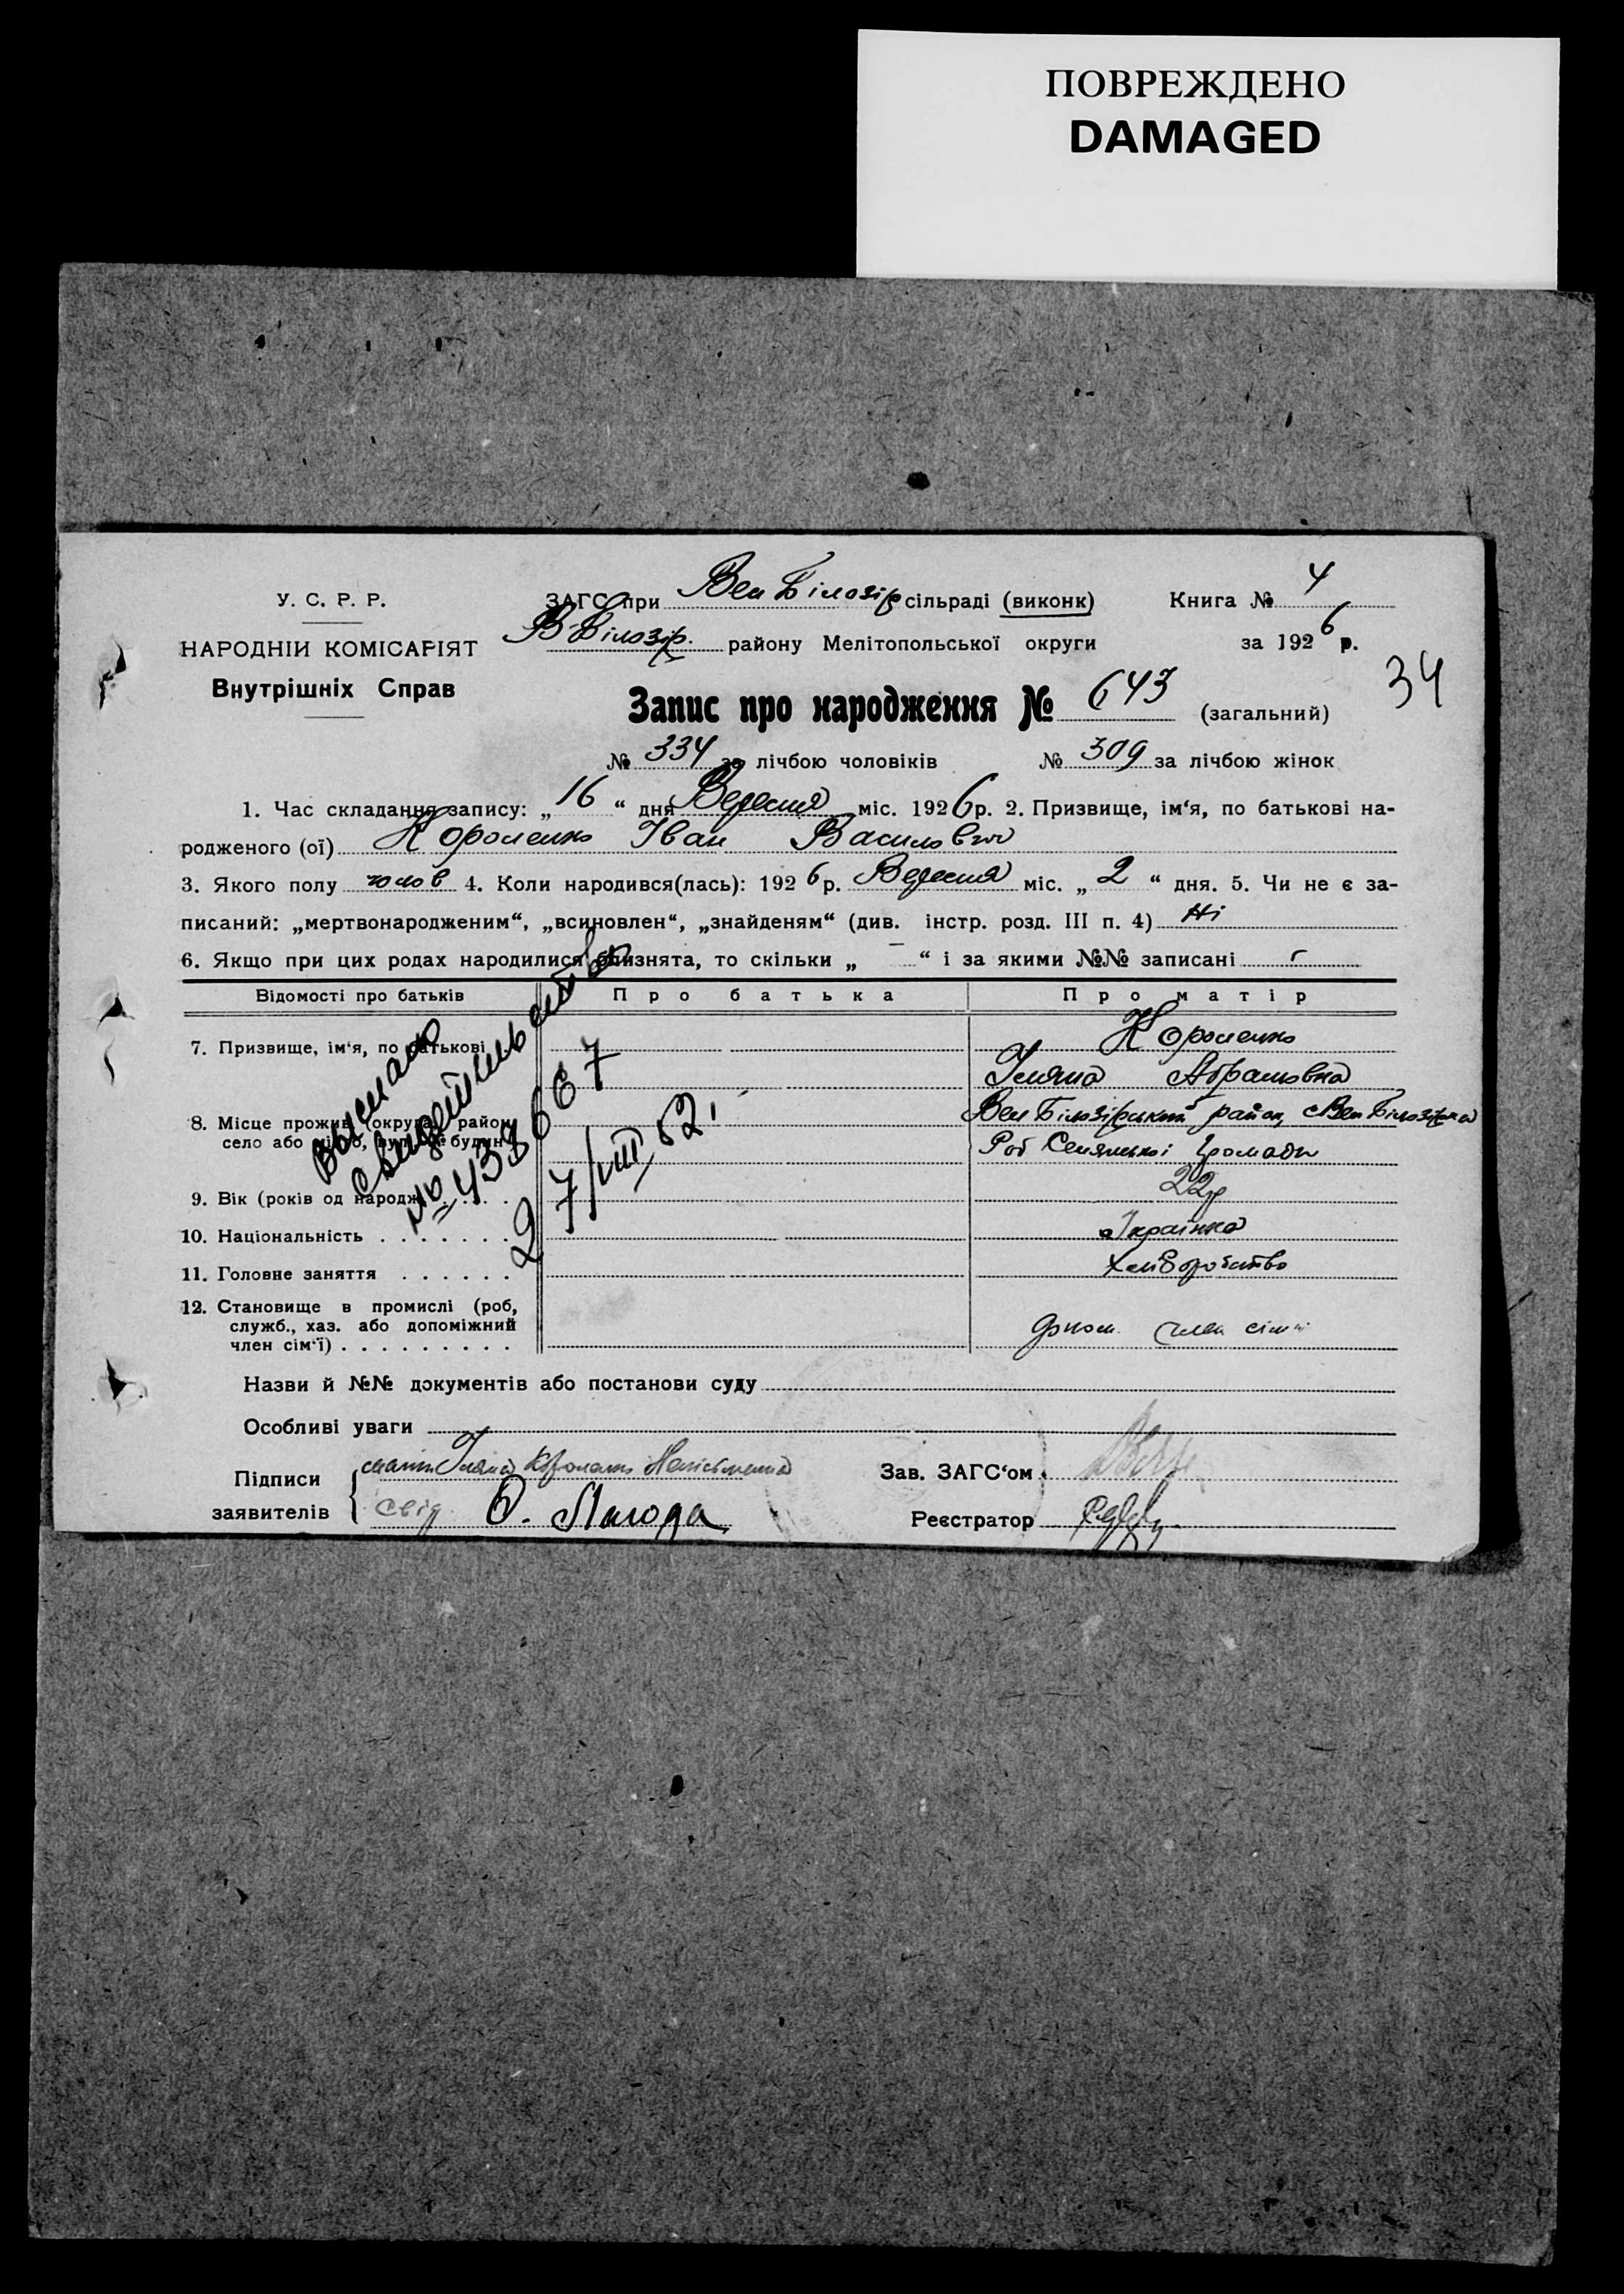 ПОВРЕЖДЕНО
DAMAGED
У. С. Р. Р.
НАРОДНІЙ КОМІСАРІЯТ
Внутрішніх Справ
ЗАГС при Вел Білозір сільраді (виконк)
В-Білозір. району Мелітопольської округи
Книга № 4
за 1926 р.
34
Запис про народження № 643 (загальний)
№ 334 за лічбою чоловіків № 309 за лічбою жінок
1. Час складання запису: „16“ дня Вересня міс. 1926 р. 2. Призвище, ім‘я, по батькові на-
родженого (ої) Короленко Іван Васильович
3. Якого полу чолов 4. Коли народився(лась): 1926 р. Вересня міс. „2“ дня. 5. Чи не є за-
писаний: „мертвонародженим“, „всиновлен“, „знайденям“ (див. інстр. розд. III п. 4) Ні
6. Якщо при цих родах народилися близнята, то скільки „ – “ і за якими №№ записані
Відомості про батьків Про батька Про матір
7. Призвище, ім‘я, по батькові Короленко
Уляна Абрамовна
8. Місце прожив (округа, район, Вел Білозірський район, с Вел Білозірка
село або місто, вул. № будин Роб Селянської Громади
9. Вік (років од народж. 22р
10. Національність . . . . . . . Українка
11. Головне заняття . . . . . . Хліборобство
12. Становище в промислі (роб,
служб., хаз. або допоміжний
член сім‘ї) . . . . . . . . . допом. член сімї
Выслано
свидетельство
№ 433667
27/VIII 52
Назви й №№ документів або постанови суду
Особливі уваги
Підписи
заявителів
мати Уляна Короленко Неписьменна
свід О. Лагода
Зав. ЗАГС‘ом
Реєстратор